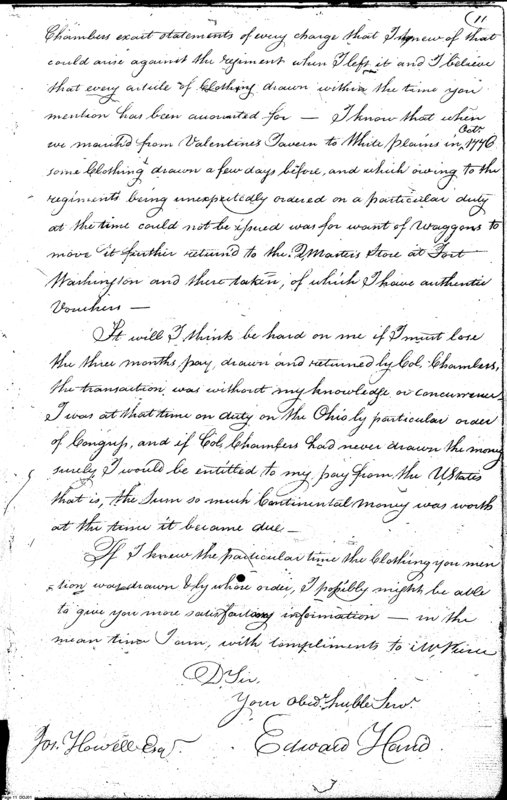 11
Chambers exact statements of every charge that I knew of that
could arise against the regiment when I left it and I believe
that every article of Clothing drawn within the time you
mention has been accounted for — I know that when
we march'd from Valentine's Tavern to White plains in Octr. 1776
some Clothing drawn a few days before, and which owing to the
regiments being unexpectedly ordered on a particular duty
at the time could not be issued was for want of Waggons to
move it further return'd to the Q Masters Store at Fort
Washington and there taken, of which I have authentic
Vouchers —
It will I think be hard on me if I must lose
the three months pay, drawn and returned by Col. Chambers,
the transaction was without my knowledge or concurrence
I was at that time on duty on the Ohio by particular order
of Congress, and if Col. Chambers had never drawn the money
surely I would be entitled to my pay from the UStates
that is, the Sum so much Continental money was worth
at the time it became due —
If I knew the particular time the Clothing you men
tion was drawn & by whose order, I possibly might be able
to give you more satisfactory information — in the
mean time I am, with compliments to Mr Pierce
D Sir,
Your obedt. huble Servt.
Jos. Howell Esqr.
Edward Hand
Page 11